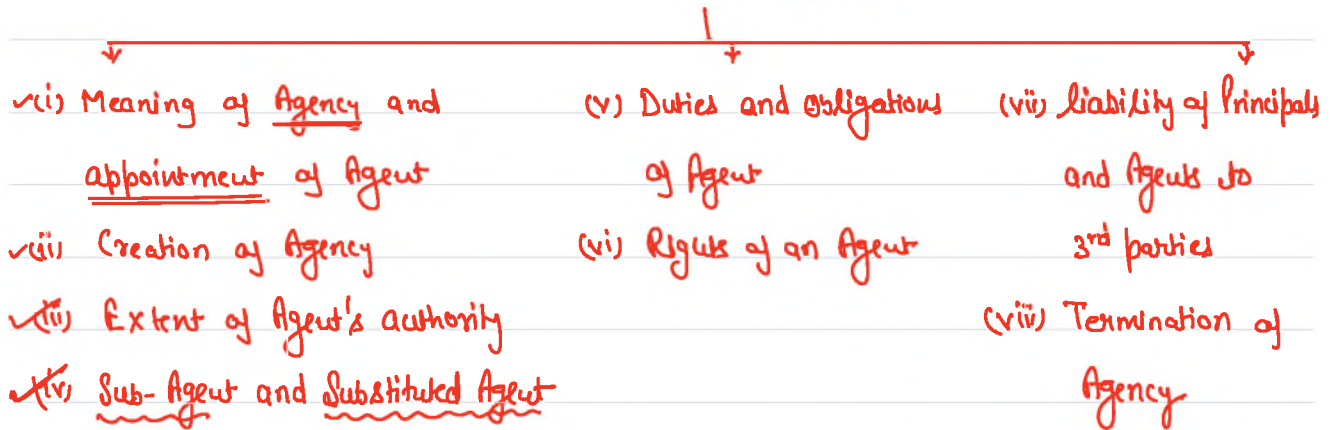 (i) Meaning of Agency and
appointment of Agent
(ii) Creation of Agency
(iii) Extent of Agent's authority
(iv) Sub-Agent and Substituted Agent
(v) Duties and obligations
of Agent
(vi) Rights of an Agent
(vii) liability of Principals
and Agents to
3rd parties
(viii) Termination of
Agency